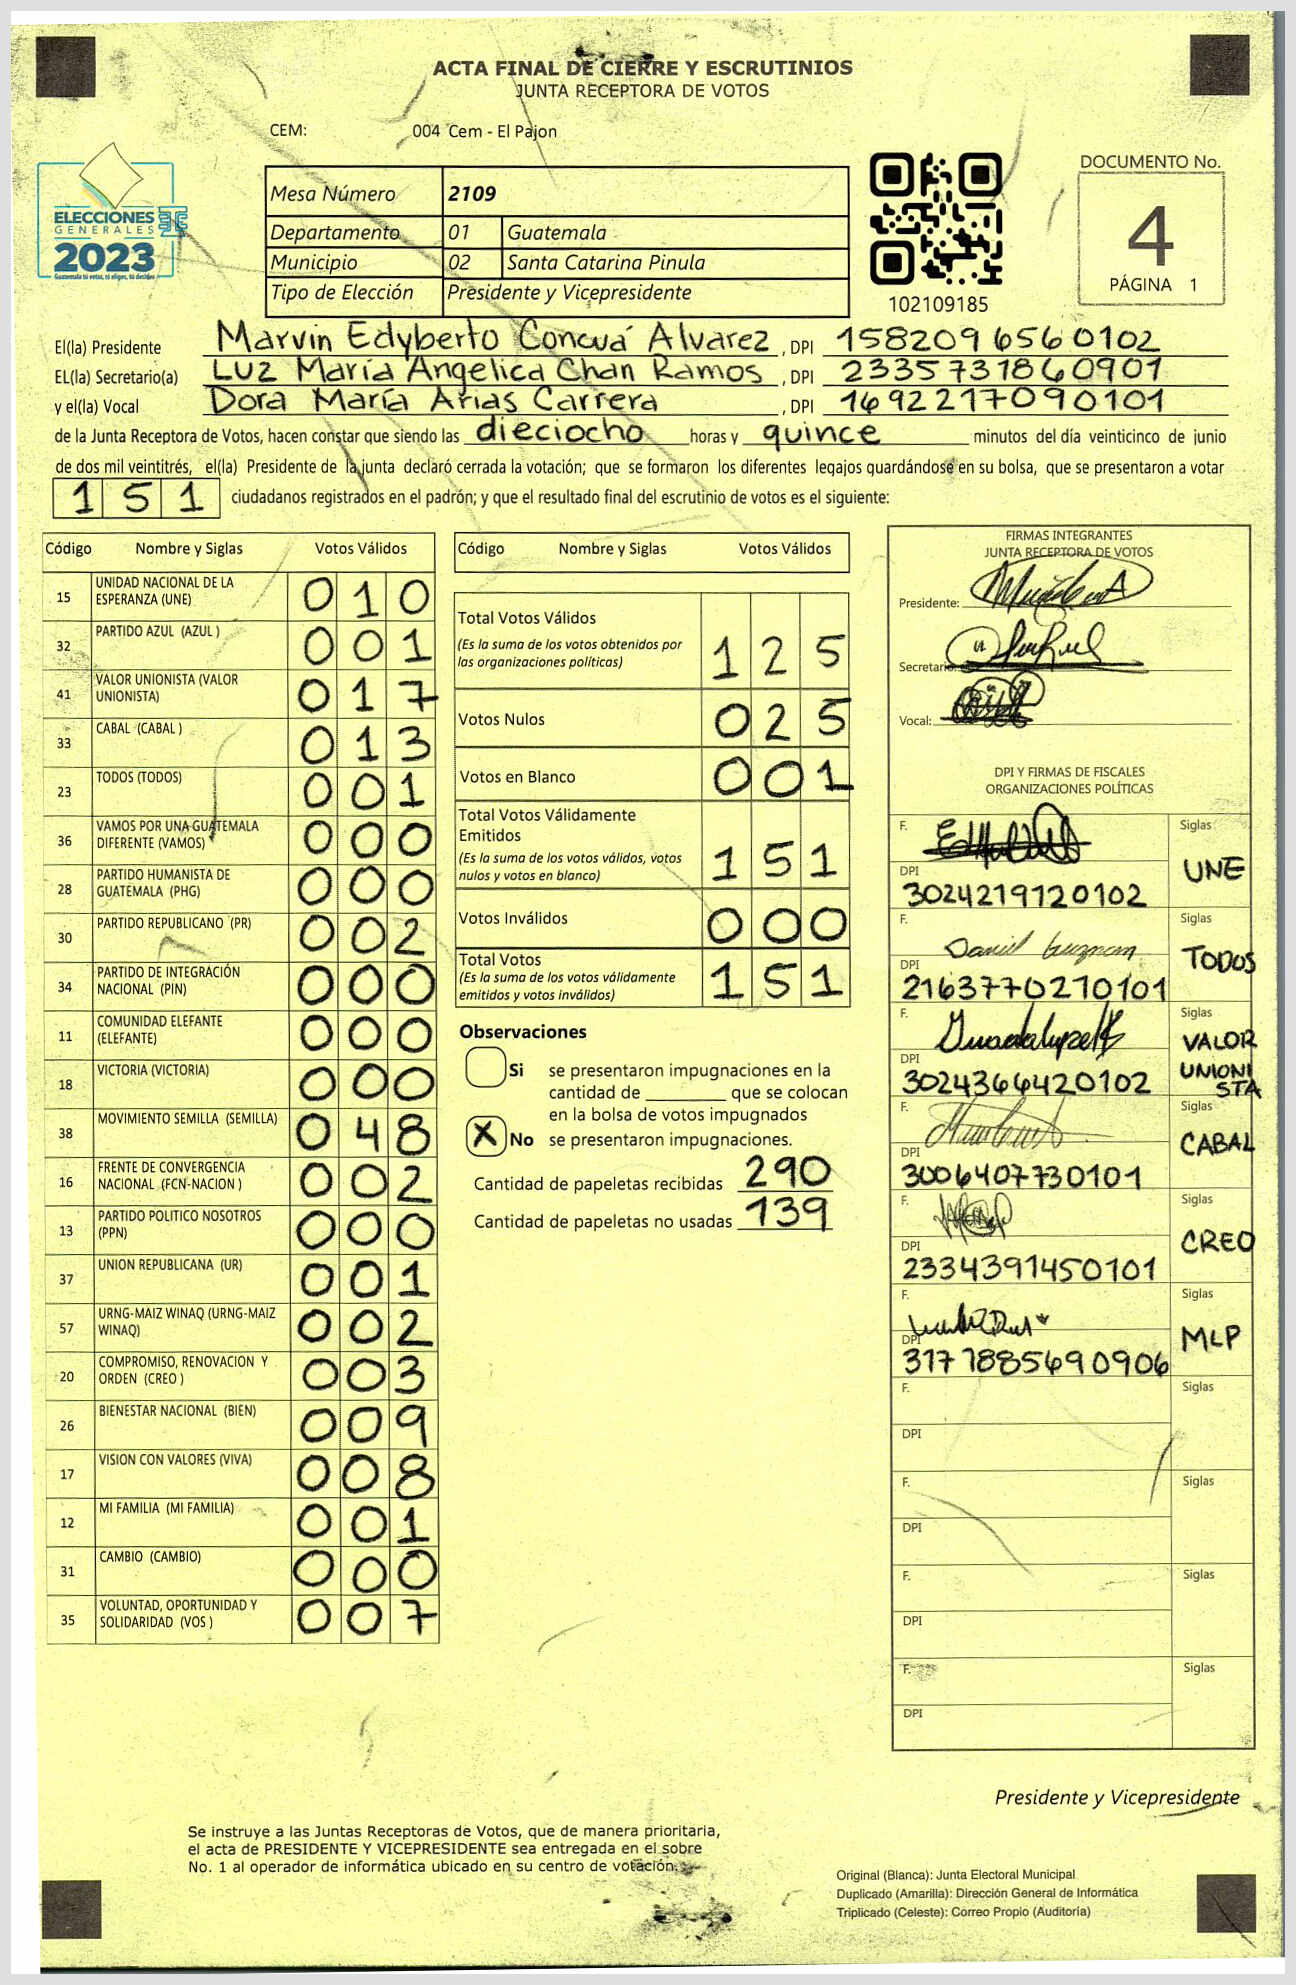 ACTA FINAL DE CIERRE Y ESCRUTINIOS
JUNTA RECEPTORA DE VOTOS
CEM: 004 Cem - El Pajon
ELECCIONES
GENERALES
2023
Guatemala tú votas, tú eliges, tú decides
Mesa Número 2109
Departamento 01 Guatemala
Municipio 02 Santa Catarina Pinula
Tipo de Elección Presidente y Vicepresidente
102109185
DOCUMENTO No.
4
PÁGINA 1
El(la) Presidente Marvin Edyberto Concuá Alvarez, DPI 1582096560102
EL(la) Secretario(a) Luz María Angelica Chan Ramos, DPI 2335731860901
y el(la) Vocal Dora María Arias Carrera, DPI 1692217090101
de la Junta Receptora de Votos, hacen constar que siendo las dieciocho horas y quince minutos del día veinticinco de junio
de dos mil veintitrés, el(la) Presidente de la junta declaró cerrada la votación; que se formaron los diferentes legajos guardándose en su bolsa, que se presentaron a votar
151 ciudadanos registrados en el padrón; y que el resultado final del escrutinio de votos es el siguiente:
Código Nombre y Siglas Votos Válidos
15 UNIDAD NACIONAL DE LA ESPERANZA (UNE) 010
32 PARTIDO AZUL (AZUL ) 001
41 VALOR UNIONISTA (VALOR UNIONISTA) 017
33 CABAL (CABAL ) 013
23 TODOS (TODOS) 001
36 VAMOS POR UNA GUATEMALA DIFERENTE (VAMOS) 000
28 PARTIDO HUMANISTA DE GUATEMALA (PHG) 000
30 PARTIDO REPUBLICANO (PR) 002
34 PARTIDO DE INTEGRACIÓN NACIONAL (PIN) 000
11 COMUNIDAD ELEFANTE (ELEFANTE) 000
18 VICTORIA (VICTORIA) 000
38 MOVIMIENTO SEMILLA (SEMILLA) 048
16 FRENTE DE CONVERGENCIA NACIONAL (FCN-NACION ) 002
13 PARTIDO POLITICO NOSOTROS (PPN) 000
37 UNION REPUBLICANA (UR) 001
57 URNG-MAIZ WINAQ (URNG-MAIZ WINAQ) 002
20 COMPROMISO, RENOVACION Y ORDEN (CREO ) 003
26 BIENESTAR NACIONAL (BIEN) 009
17 VISION CON VALORES (VIVA) 008
12 MI FAMILIA (MI FAMILIA) 001
31 CAMBIO (CAMBIO) 000
35 VOLUNTAD, OPORTUNIDAD Y SOLIDARIDAD (VOS ) 007
Código Nombre y Siglas Votos Válidos
Total Votos Válidos
(Es la suma de los votos obtenidos por
las organizaciones políticas) 125
Votos Nulos 025
Votos en Blanco 001
Total Votos Válidamente
Emitidos
(Es la suma de los votos válidos, votos
nulos y votos en blanco) 151
Votos Inválidos 000
Total Votos
(Es la suma de los votos válidamente
emitidos y votos inválidos) 151
Observaciones
Si se presentaron impugnaciones en la
cantidad de ________ que se colocan
en la bolsa de votos impugnados
X No se presentaron impugnaciones.
Cantidad de papeletas recibidas 290
Cantidad de papeletas no usadas 139
FIRMAS INTEGRANTES
JUNTA RECEPTORA DE VOTOS
Presidente:
Secretario:
Vocal:
DPI Y FIRMAS DE FISCALES
ORGANIZACIONES POLÍTICAS
F. Siglas
DPI UNE
3024219120102
F. Daniel Guzman Siglas
DPI TODOS
2163770270101
F. Siglas
DPI VALOR UNIONISTA
3024366420102
F. Siglas
DPI CABAL
3006407730101
F. Siglas
DPI CREO
2334391450101
F. Siglas
DPI MLP
3177885690906
F. Siglas
DPI
F. Siglas
DPI
F. Siglas
DPI
F. Siglas
DPI
Presidente y Vicepresidente
Se instruye a las Juntas Receptoras de Votos, que de manera prioritaria,
el acta de PRESIDENTE Y VICEPRESIDENTE sea entregada en el sobre
No. 1 al operador de informática ubicado en su centro de votación.
Original (Blanca): Junta Electoral Municipal
Duplicado (Amarilla): Dirección General de Informática
Triplicado (Celeste): Correo Propio (Auditoría)